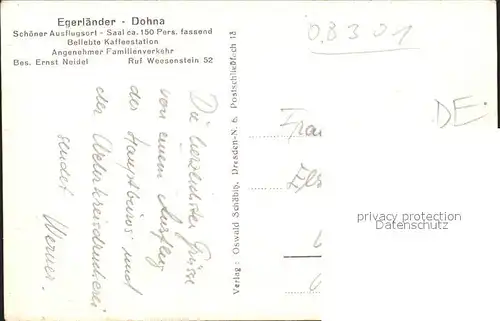 Egerländer - Dohna
Schöner Ausflugsort - Saal ca. 150 Pers. fassend
Beliebte Kaffeestation
Angenehmer Familienverkehr
Bes. Ernst Neidel Ruf Weesenstein 52
Die herzlichsten Grüße
von einem Ausflug
des Hauptbüros und
der
sendet Werner.
Verlag: Oswald Schäbig, Dresden-N. 6, Postschließfach 13
08301
DE:
Frau
privacy protection
Datenschutz